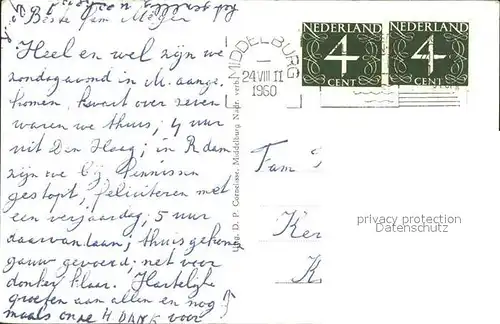 Beste fam Meijer
Heel en wel zijn we
zondagavond in M. aange-
komen, kwart over seven
waren we thuis; 4 uur
uit Den Haag; in R dam
zijn we bij kennissen
gestopt, feliciteren met
een verjaardag; 5 uur
daarvan laan; thuis gekomen
gauw gevoerd; net voor
donker klaar. Hartelijke
groeten aan allen en nog
maals onze H. DANK voor
Uitg. D. P. Cornelisse, Middelburg Nadr. verb.
MIDDELBURG
24 VIII 11
1960
NEDERLAND
4
CENT
NEDERLAND
4
CENT
Fam
privacy protection
Datenschutz